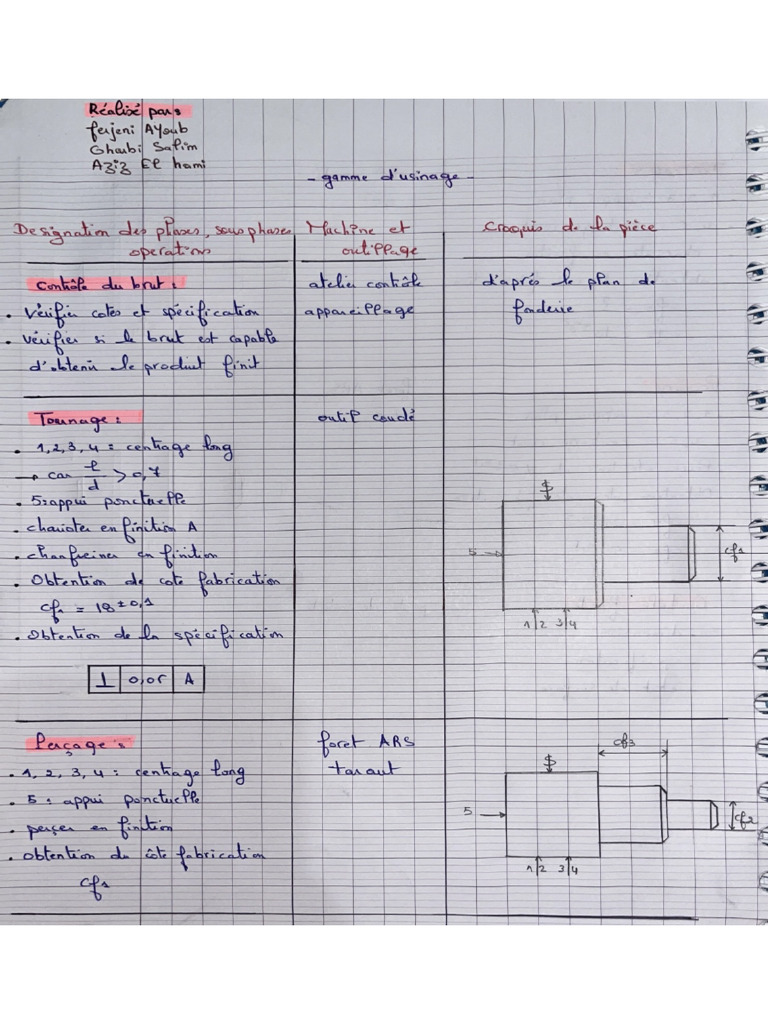 Réalisé par :
ferjeni AYoub
Gharbi Salim
Aziz El hami
- gamme d'usinage -
Designation des phases, sous phases
operations
Machine et
outillage
Croquis de la pièce
Contrôle du brut :
. Vérifier cotes et spécification
. vérifier si le brut est capable
d'obtenir le produit finit
atelier contrôle
appareillage
d'après le plan de
fonderie
Tournage :
. 1, 2, 3, 4 = centrage long
→ car l/d > 0,7
. 5 : appui ponctuelle
. charioter en finition A
. chanfreiner en finition
. Obtention de cote fabrication
cf1 = 18 ± 0,1
. Obtention de la spécification
⊥ 0,05 A
outil coudé
5
1 2 3 4
cf1
Perçage :
. 1, 2, 3, 4 : centrage long
. 5 : appui ponctuelle
. perçer en finition
. obtention du côte fabrication
cf2
foret ARS
taraut
5
1 2 3 4
cf3
cf2